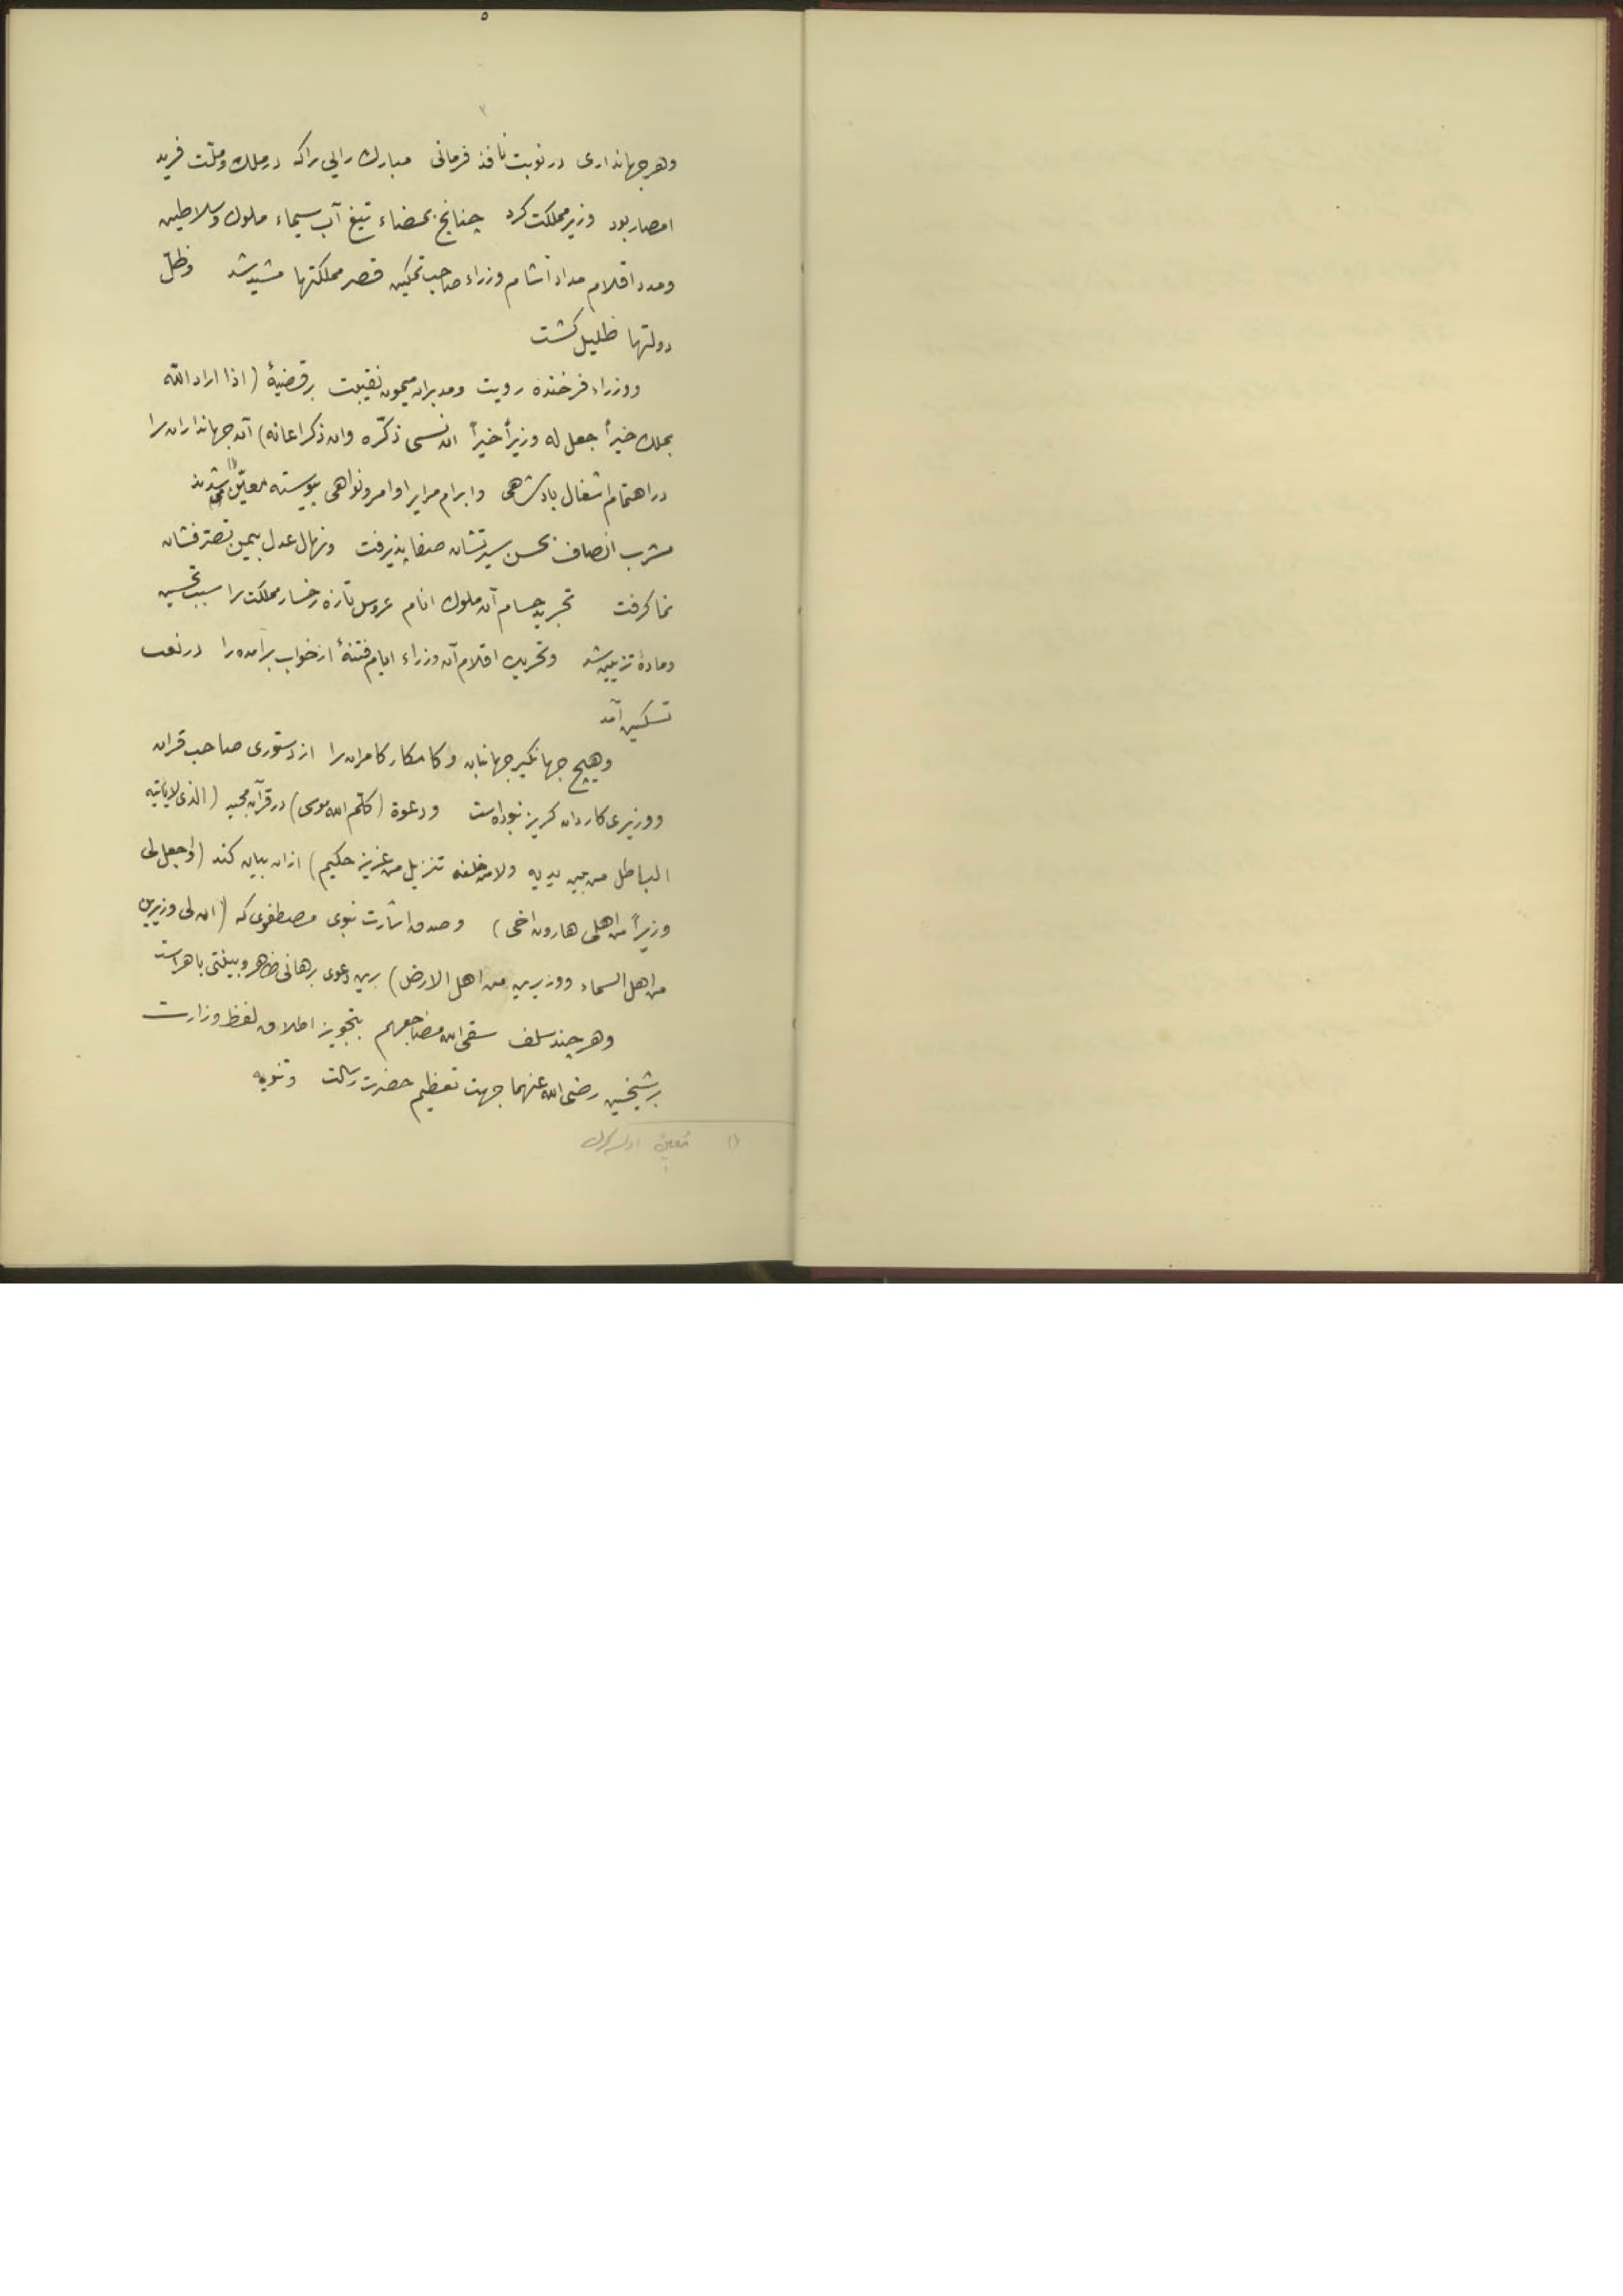 ٥
٢
وهر جهانداری در نوبت نافذ فرمانی مبارك رایی را که در ملك وملّت فرید
امصار بود وزیر مملکت کرد چنانچ بمضاء تیغ آب سیماء ملوك وسلاطین
ومدد اقلام مداد آشام وزراء صاحب تمکین قصر مملکتها مشید شد وظلّ
دولتها ظلیل کشت
ووزراء فرخنده رویت ومدبران میمون نقیبت بر قضیهٔ (اذا اراد اللّه
بملك خیراً جعل له وزیراً خیراً ان نسی ذکّره وان ذکر اعانه) آن جهانداران را
در اهتمام اشغال بادشاهی وابرام مرایر اوامر ونواهی بیوسته معیّن (١) شدند
مشرب انصاف بحسن سیرتشان صفا پذیرفت ونهال عدل بیمن تصترفشان
نما کرفت تجرید حسام آن ملوك انام عروس تازه رخسار مملکت را سبب تحسین
ومادهٔ تزیین شد وتحریك اقلام آن وزراء ایام فتنهٔ از خواب برآمده را در نعت
تسکین آمد
وهیچ جهانکیر جهانبان وکامکار کامران را از دستوری صاحب قران
ووزیری کاردان کریز نبوداست ودعوة (کلّم الله موسی) در قرآن مجید (الذی لایاتیه
الباطل من بین یدیه ولا من خلفه تنزیل من عزیز حکیم) ازان بیان کند (واجعل لی
وزیراً من اهلی هارون اخی) وصدق اشارت نبوی مصطفوی که (ان لی وزیرین
من اهل السماء ووزیرین من اهل الارض) برین دعوی برهانی ظاهر وبینتی باهر است
وهر چند سلف سقی الله مضاجعهم بتجویز اطلاق لفظ وزارت
بر شیخین رضی الله عنهما جهت تعظیم حضرت رسالت وتنویه
(١) مُعین